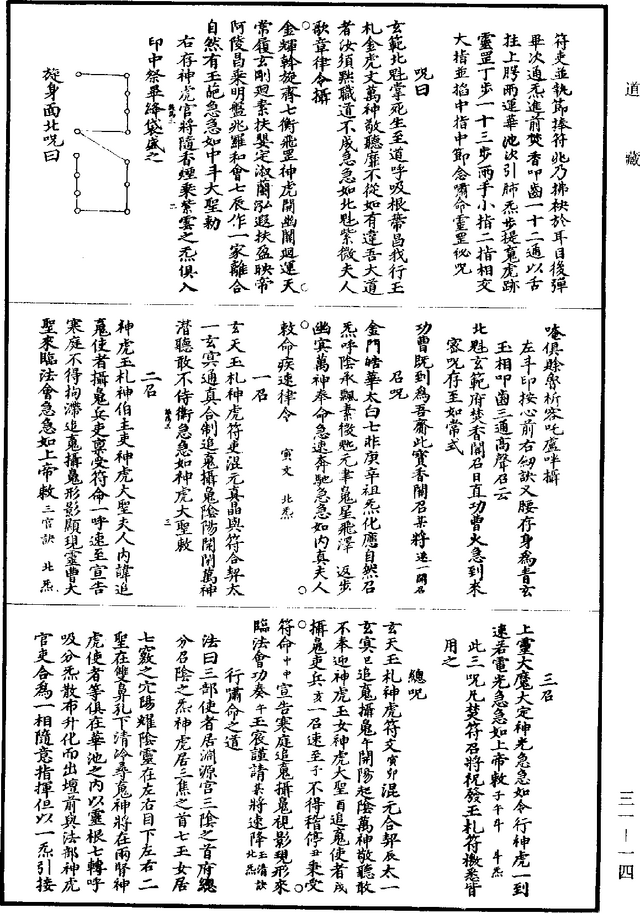 道藏
符吏並執節捧符兆乃拂袂於耳目後彈
畢次通炁進前焚香叩齒一十二通以舌
拄上腭兩運華池決引肺炁步提䰟虎跡
靈罡丁步一十三步兩手小指二指相交
大指並掐中指中節念嘯命靈罡祕呪
呪曰
玄範北魁掌死生至道呼吸根蒂昌我行玉
札金虎文萬神敬聽靡不從如有違吾大道
者汝須黜職道不成急急如北魁紫微夫人
歌章律令攝
金輝斡旋齊七衡飛罡神虎開幽關迴運天
常履玄剛迴素扶嬰定淑蘭泓遐扶盈映帝
阿陵昌來明盤兆羅和會七辰作一家離合
自然有玉葩急急如中斗大聖勑
右存神虎官將隨香煙乘紫雲之炁俱入
印中祭畢絳袋盛之
旋身面北呪曰
唵俱賒魯析容吒盧吽攝
左斗印按心前右劒訣叉腰存身為青玄
玉相叩齒三通高聲召云
北魁玄範府焚香關召日直功曹火急到來
密呪存至如常式
功曹既到為吾齋此寶香關召某將速一關召
召呪
金門皓華太白七非庚辛祖炁化應自然召
炁呼陰承飄素後虵元聿鬼星飛澤 返步
幽冥萬神奉命急速奔馳急急如內真夫人
敕命疾速律令 寅文 北炁
一召
玄天玉札神虎符吏混元真晶與符合契太
一玄冥通真合制追䰟攝䰟陰陽開闔萬神
潛聽敢不侍衛急急如神虎大聖敕
二召
神虎玉札神伯主吏神虎大聖夫人內諱追
䰟使者攝䰟兵吏稟受符命一呼速至宣告
寒庭不得拘滯追䰟攝䰟形影顯現靈曹大
聖來臨法會急急如上帝敕 三官訣 北炁
三召
上靈大魔大定神光急急如令行神虎一到
速若電光急急如上帝敕子午斗 斗炁
此三呪凡焚符召將祝發玉札符檄悉皆
用之
總呪
玄天玉札神虎符文寅卯混元合契辰太一
玄冥巳追䰟攝䰟午開陽起陰萬神敬聽敢
不奉迎神虎玉女神虎大聖酉追䰟使者戌
攝䰟吏兵亥一召速至子不得稽停丑秉受
符命中中宣告寒庭追䰟攝䰟視影現形來
臨法會功奏午玉宸謹請某將速降玉清訣北炁
行嘯命之道
法曰三部使者居淵源宮三陰之首府總
分召陰之炁神虎居三焦之首七玉女居
七竅之宂陽燿陰靈在左右目下左右二
聖在雙鼻孔下清冷尋䰟神將在兩腎神
虎使者等俱在華池之內以靈根七轉呼
吸分炁散布升化而出壇前與法部神虎
官吏合為一相隨意指揮但以一炁引接
三一—一四